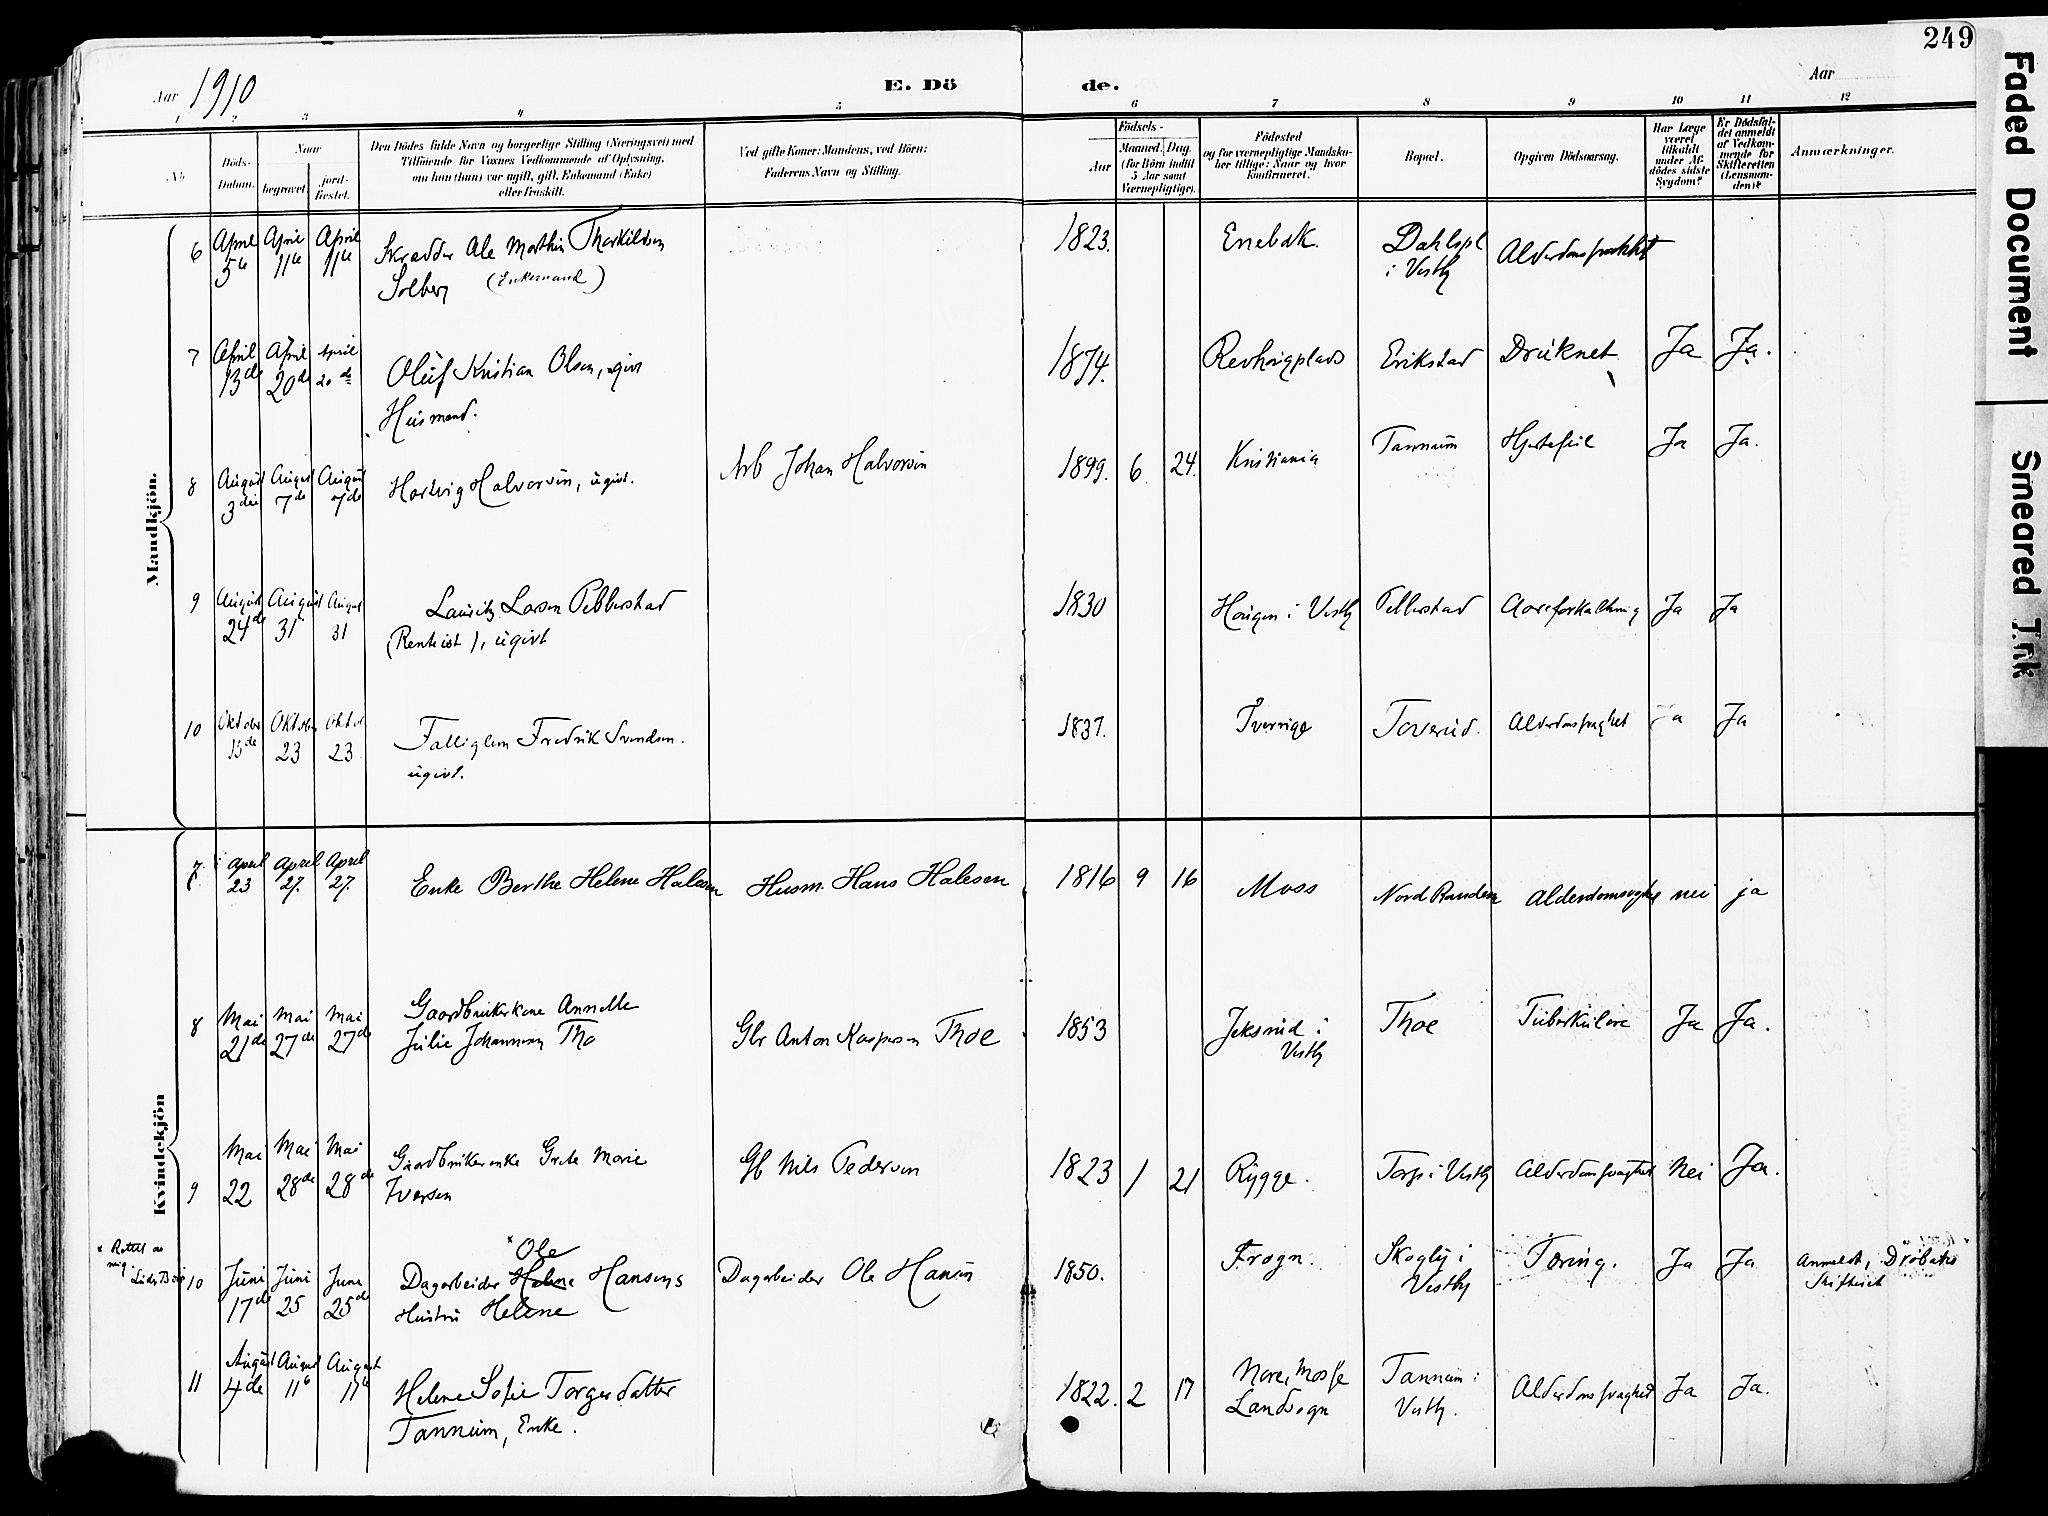 249
Faded Document
Smeared Ink
Aar 1910
E. Dö de.
Aar
1 2 3 4 5 6 7 8 9 10 11 12
No.
Döds-Datum.
Naar
begravet.
jord-fæstet.
Den Dödes fulde Navn og borgerlige Stilling (Næringsvei) med
Tilföiende for Voxnes Vedkommende af Oplysning,
om han (hun) var ugift, gift, Enkemand (Enke)
eller fraskilt.
Ved gifte Koner: Mandens, ved Börn:
Faderens Navn og Stilling.
Födsels-
Aar
Maaned. Dag.
(for Börn indtil
5 Aar samt
Værnepligtige).
Födested
og for værnepligtige Mandska-
ber tillige: Naar og hvor
konfirmeret.
Bopæl.
Opgiven Dödsaarsag.
Har Læge
været
tilkaldt
under Af-
dödes sidste
Sygdom?
Er Dödsfal-
det anmeldt
af Vedkom-
mende for
Skifteretten
(Lensman-
den)?
Anmærkninger.
Mandkjön.
6 April 5te April 11te April 11te Skrædder Ole Marthin Thorkildsen
Solberg (Enkemand)
1823. Enebak. Dahlspl
i Vestby
7 April 13de April 20de April 20de Oluf Kristian Olsen, ugivt
Husmand.
1874. Erikstad Druknet. Ja Ja.
8 August 3die August 7de August 7de Hartvig Halvorsen, ugivt. Arb Johan Halvorsen 1899. 6 24. Kristiania Tannum Hjertefeil Ja Ja.
9 August 24de August 31 August 31 Lauritz Larsen Pebberstad
(Renteist), ugivt
1830 Haugen i Vestby Pebberstad Aareforkalkning Ja Ja
10 Oktober 15de Oktober 23 Oktober 23 Fattiglem Fredrik Svendsen.
ugivt.
1837. Sverrige Toverud. Alderdomssvaghet Ja Ja
Kvindekjön
7 April 23 April 27. April 27. Enke Berthe Helene Halesen Husm. Hans Halesen 1816 9 16 Moss Nord Randem Alderdomssvaghet nei ja
8 Mai 21de Mai 27de Mai 27de Gaardbrukerkone Annette
Julie Johannesen Tho
Gbr Anton Kaspersen Thoe 1853 Jeksrud i
Vestby
Thoe Tuberkulose Ja Ja.
9 Mai 22 Mai 28de Mai 28de Gaardbrukerenke Grete Marie
Iversen
Gb Nils Pedersen 1823 1 21 Rygge. Torp i Vestby Alderdomssvaghet Nei Ja.
* Rettet av
mig
10 Juni 17de Juni 25 June 25de * Ole
Dagarbeider Helene Hansens
Hustru Helene
Dagarbeider Ole Hansen 1850. Frogn. Skogly i
Vestby
Tæring. Ja Ja Anmeldt, Drøbaks
Skifteret
11 August 4de August 11te August 11te Helene Sofie Torgersdatter
Tannum, Enke.
1822. 2 17 Nore, Mosse
Landsogn
Tannum i
Vestby.
Alderdomssvaghet Ja Ja.